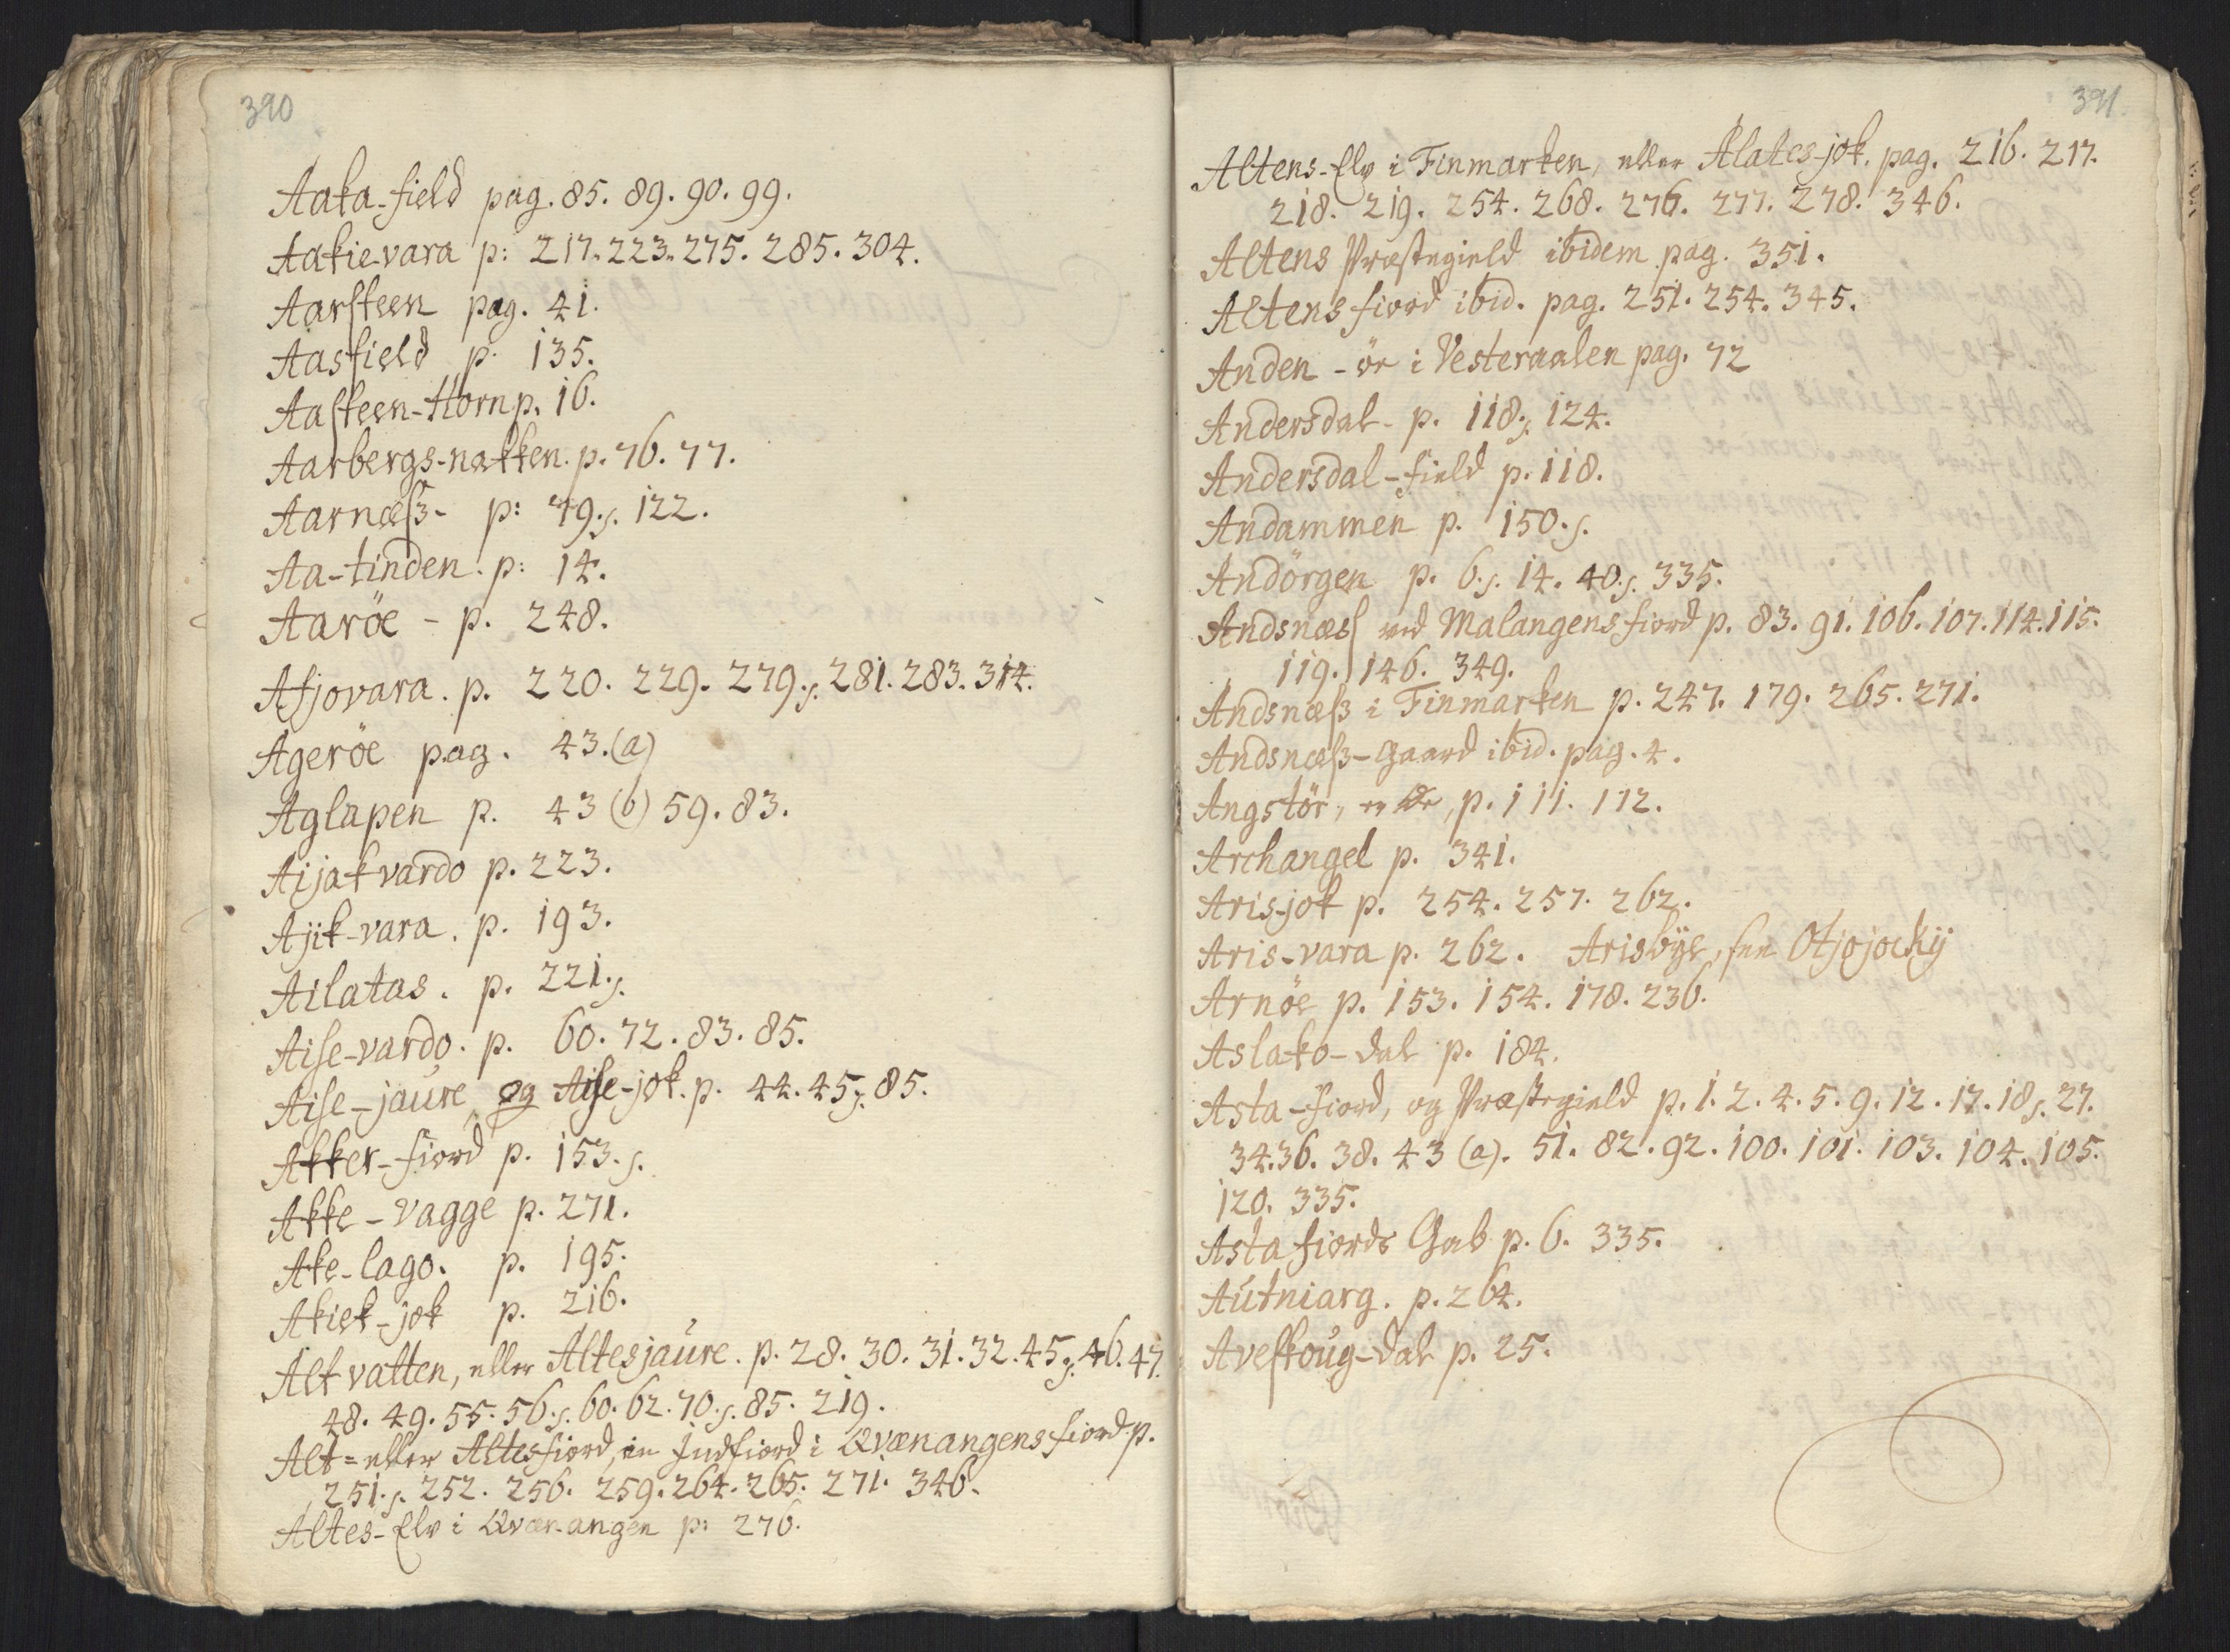 390
Aaka-field pag. 85. 89. 90. 99.
Aakie-vara p: 217. 223. 275. 285. 304.
Aarsteen pag. 41.
Aasfield p. 135.
Aasteen-Horn p. 16.
Aarbergs-nakken. p. 76. 77.
Aarnæss- p: 79.s. 122.
Aa-tinden. p: 14.
Aaröe - p. 248.
Afjovara. p. 220. 229. 279.s. 281. 283. 314.
Ageröe pag. 43.(a)
Aglapen p. 43 (b) 59. 83.
Aijak vardo p. 223.
Ajik-vara. p. 193.
Ailatas. p. 221.s.
Aise-vardo. p. 60. 72. 83. 85.
Aise-jaure og Aise-jok. p. 44. 45.s. 85.
Akker-fiord p. 153.s.
Akke-vagge p. 271.
Ake-lago. p. 195.
Akiek-jok p. 216.
Alt vatten, eller Altesjaure. p. 28. 30. 31. 32. 45.s. 46. 47.
48. 49. 55. 56.s. 60. 62. 70.s. 85. 219.
Alt= eller Altesfiord, en Indfiord i Qvænangensfiord p.
251.s. 252. 256. 259. 264. 265. 271. 346.
Altes-Elv i Qvæn-angen p: 276.
391.
Altens-Elv i Finmarken, eller Alates-jok. pag. 216. 217.
218. 219. 254. 268. 276. 277. 278. 346.
Altens Præstegield ibidem pag. 351.
Altens fiord ibid. pag. 251. 254. 345.
Anden-ör i Vesteraalen pag. 72
Andersdal- p. 118.s. 124.
Andersdal-field p. 118.
Andammen p. 150.s.
Andörgen p. 6.s. 14. 40.s. 335.
Andsnæss ved Malangensfiord p. 83. 91. 106. 107. 114. 115.
119. 146. 349.
Andsnæss i Finmarken p. 247. 179. 265. 271.
Andsnæss-Gaard ibid. pag. 4.
Angstör, en Öe, p. 111. 112.
Archangel p. 341.
Aris-jok p. 254. 257. 262.
Aris-vara p. 262. Arisbye, see Otjojockij
Arnöe p. 153. 154. 178. 236.
Aslako-dal p. 184.
Asta-fiord, og Præstegield p. 1. 2. 4. 5. 9. 12. 17. 18.s. 27.
34. 36. 38. 43 (a). 51. 82. 92. 100. 101. 103. 104. 105.
120. 335.
Asta fiords Gab p. 6. 335.
Autniarg. p. 264.
Aveskoug-dal p. 25.